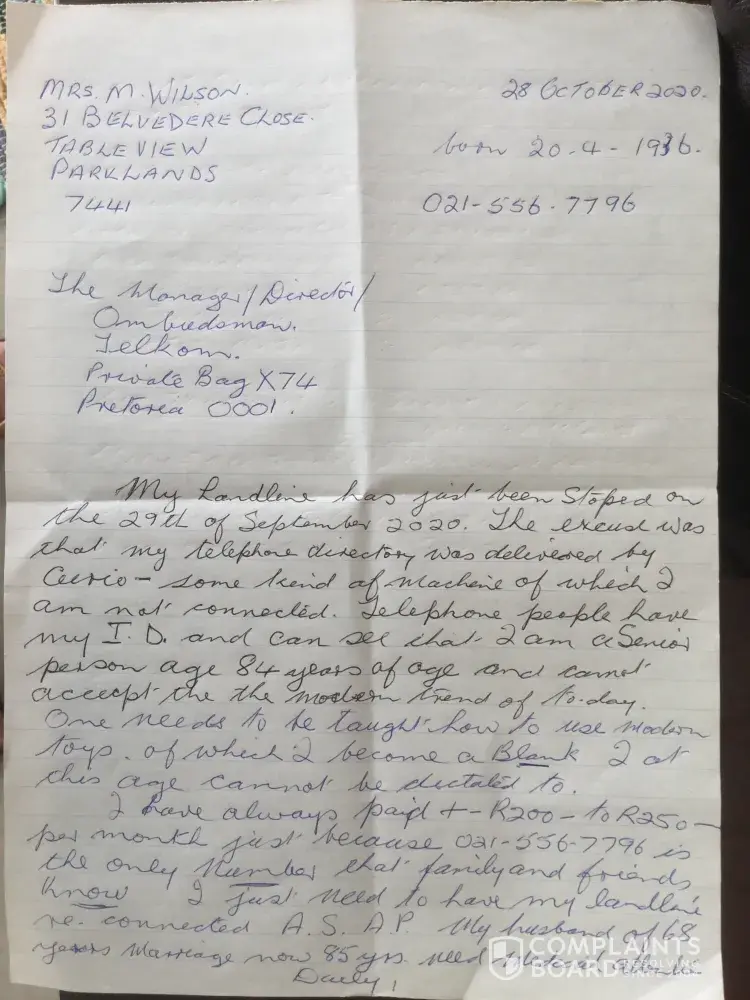 MRS. M. WILSON.
28 OCTOBER 2020.
31 BELVEDERE CLOSE.
TABLEVIEW
born 20.4-1936.
PARKLANDS
7441
021-556.7796
The Manager/Director/
Ombudsman.
Telkom.
Private Bag X74
Pretoria 0001.
My Landline has just been Stoped on
the 29th of September 2020. The excuse was
that my telephone directory was delivered by
- some kind of machine of which I
am not connected. Telephone people have
my I.D. and can see that I am a Senior
person age 84 years of age and cannot
acceept the the modern trend of to-day.
One needs to be taught how to use modern
toys. of which I become a Blank I at
this age cannot be dictated to.
I have always paid +-R200-to R250-
per month just because 021-556-7796 is
the only number that family and friends
know I just need to have my landline
re-connected A.S.A.P. My husband of 68
years marriage now 85 yrs. need
Daily,
COMPLAINTS
BOARD
RESOLVING
SINCE 2004